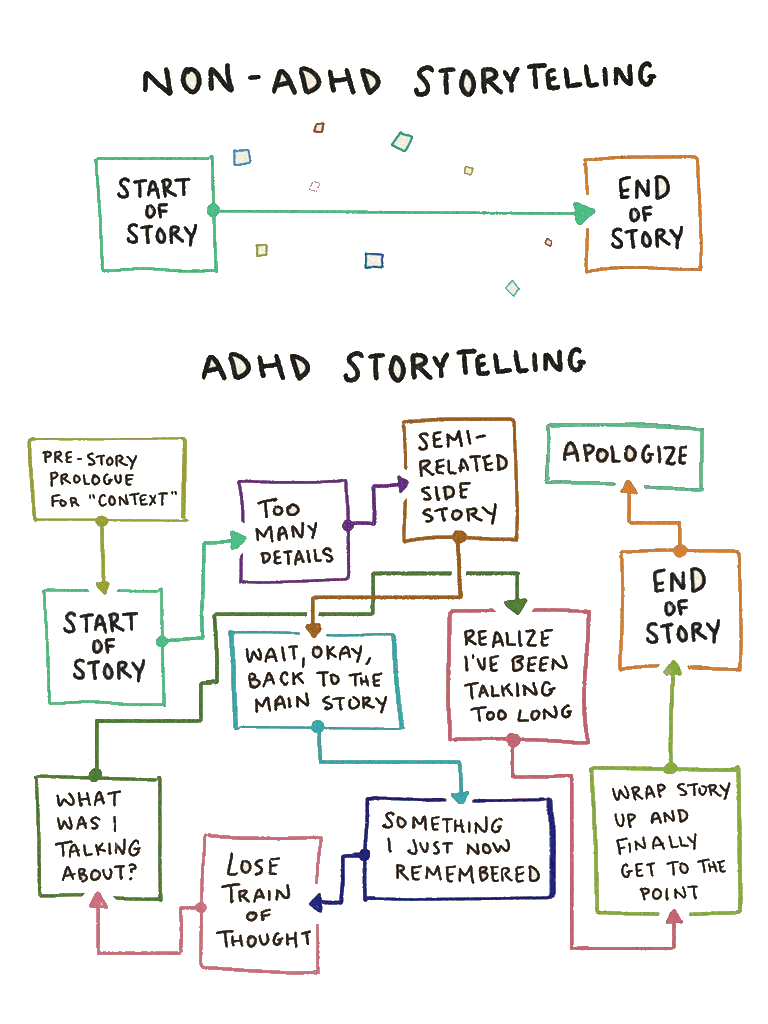 NON-ADHD STORYTELLING
START
OF
STORY
END
OF
STORY
ADHD STORYTELLING
PRE-STORY
PROLOGUE
FOR "CONTEXT"
START
OF
STORY
TOO
MANY
DETAILS
SEMI-
RELATED
SIDE
STORY
WAIT, OKAY,
BACK TO THE
MAIN STORY
SOMETHING
I JUST NOW
REMEMBERED
LOSE
TRAIN
OF
THOUGHT
WHAT
WAS I
TALKING
ABOUT?
REALIZE
I'VE BEEN
TALKING
TOO LONG
WRAP STORY
UP AND
FINALLY
GET TO THE
POINT
END
OF
STORY
APOLOGIZE